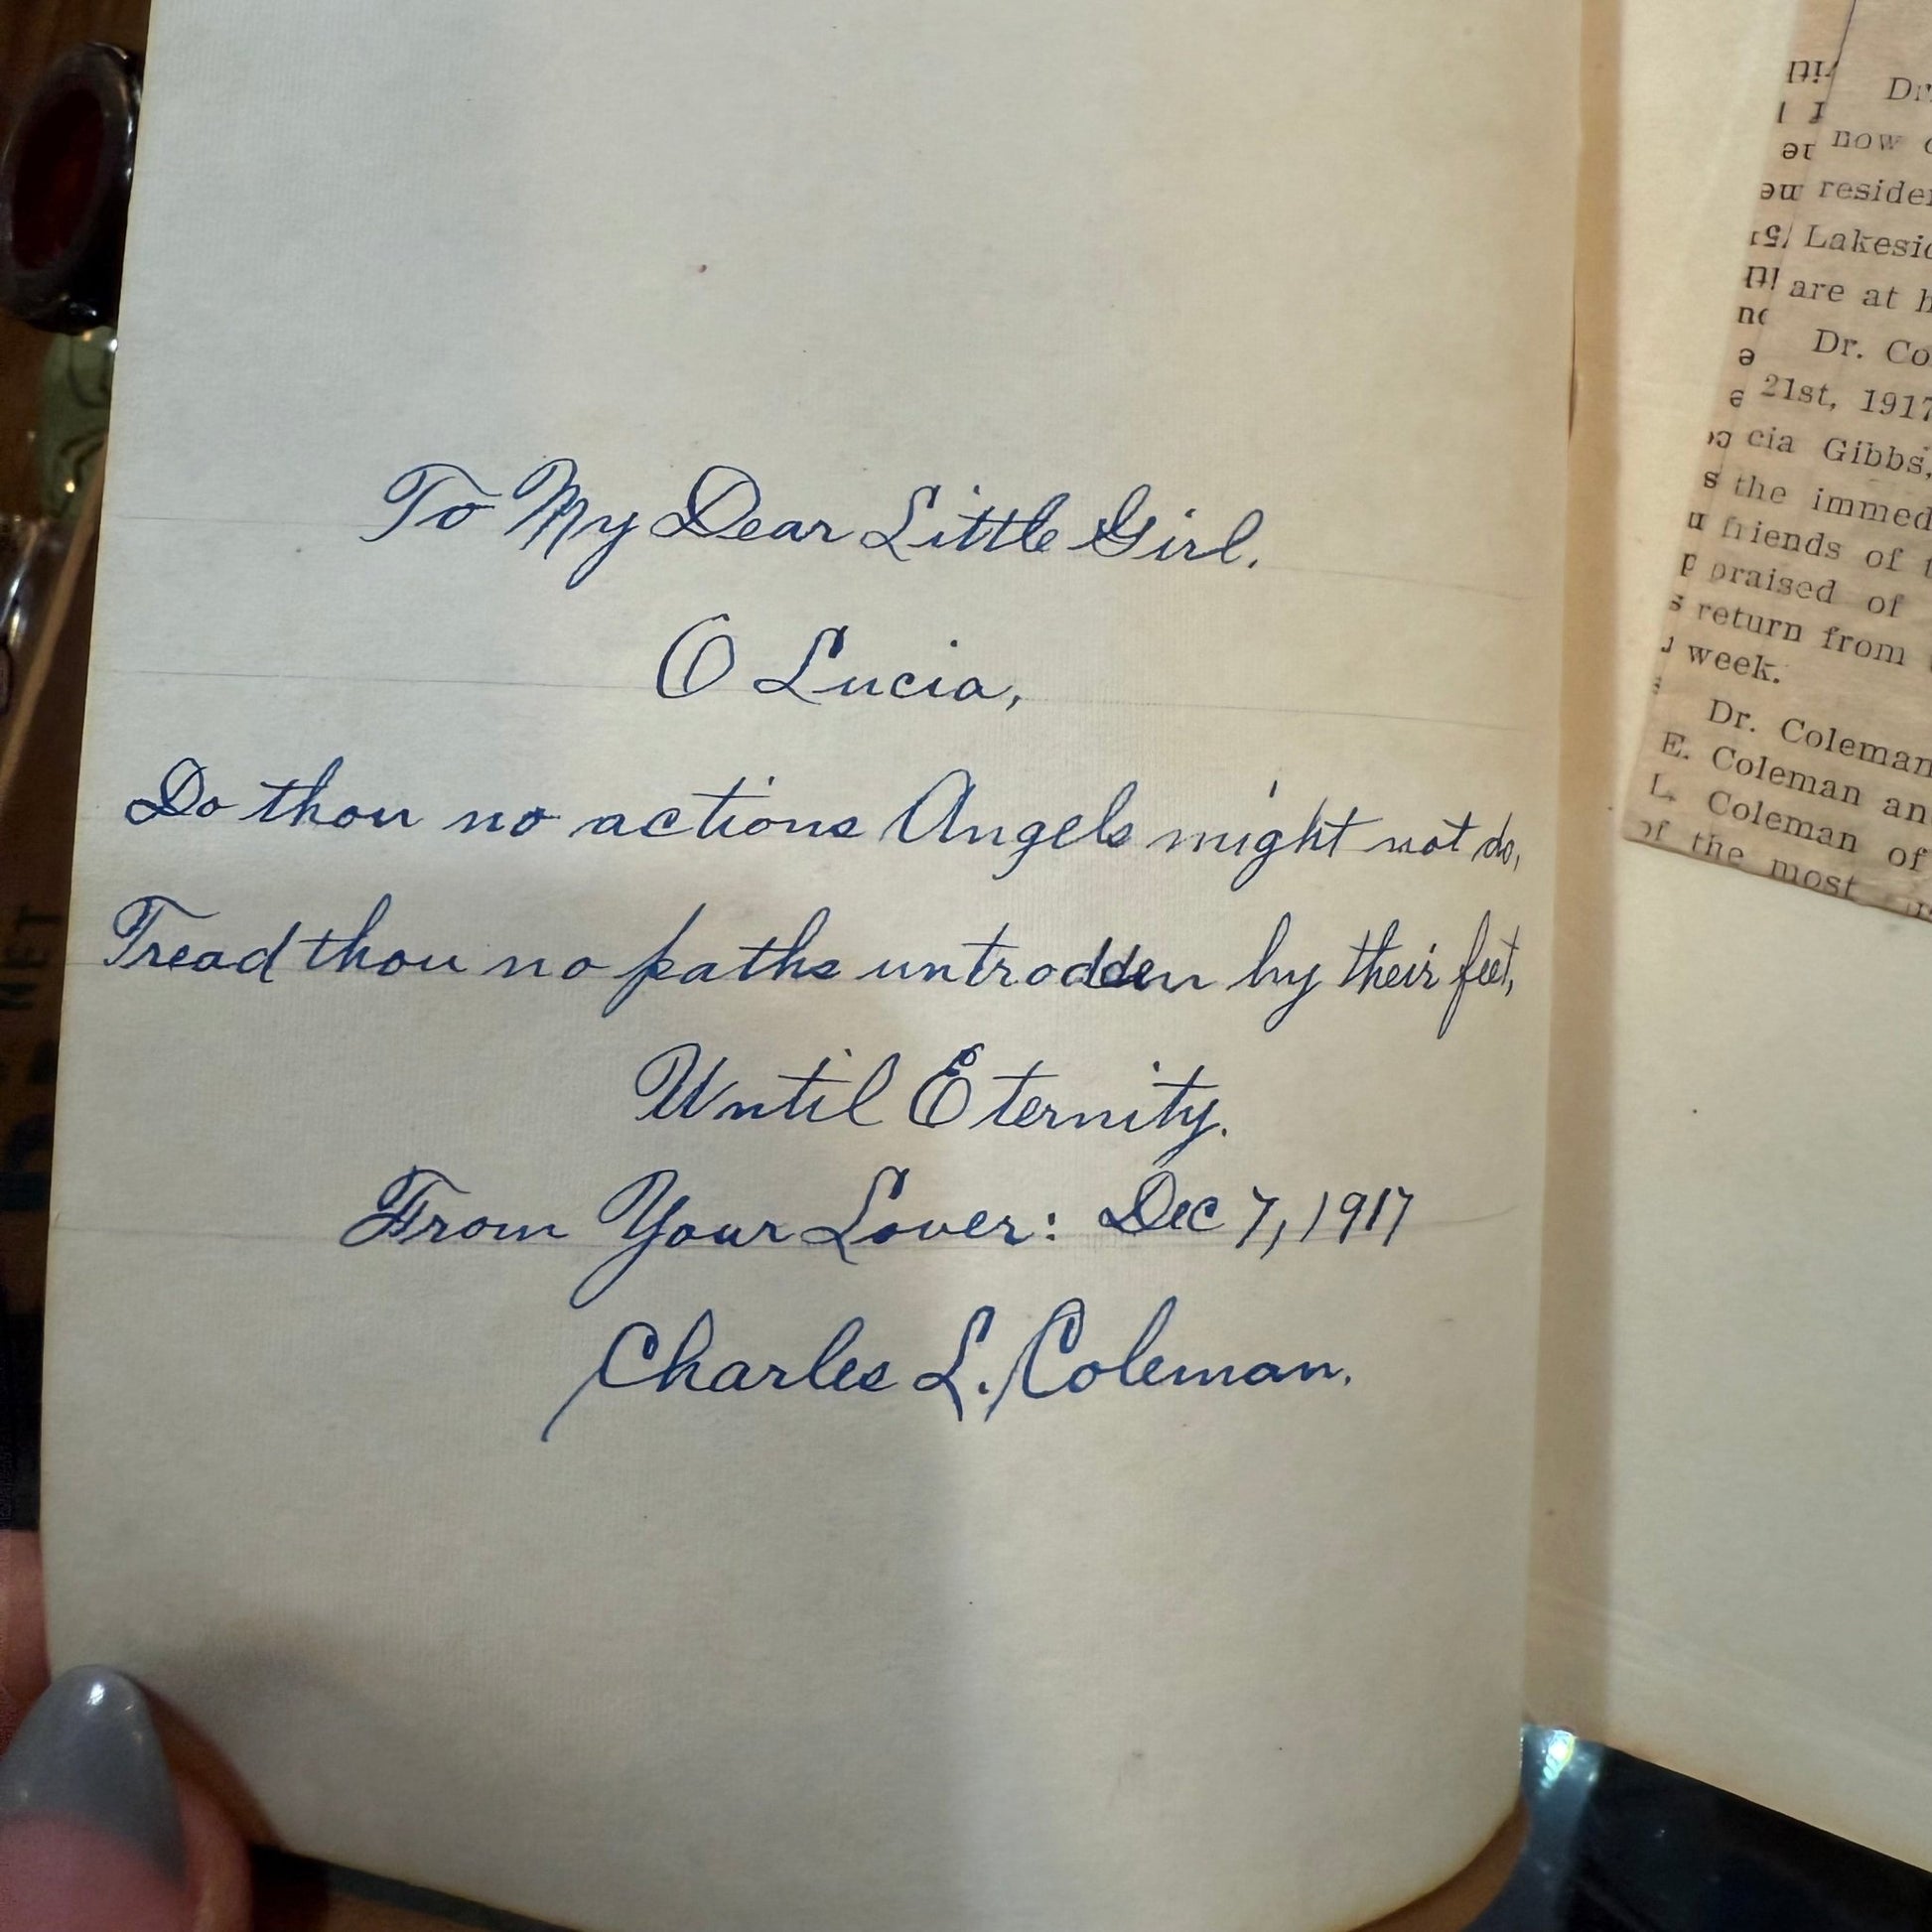 To My Dear Little Girl.
O Lucia,
Do thou no actions Angels might not do,
Tread thou no paths untrodden by their feet,
Until Eternity.
From Your Lover: Dec 7, 1917
Charles L. Coleman.
now
Lakesid
are at h
Dr. Co
21st, 1917
cia Gibbs,
the immed
friends of t
praised of
return from
week.
Dr. Coleman
E. Coleman an
L. Coleman of
of the most